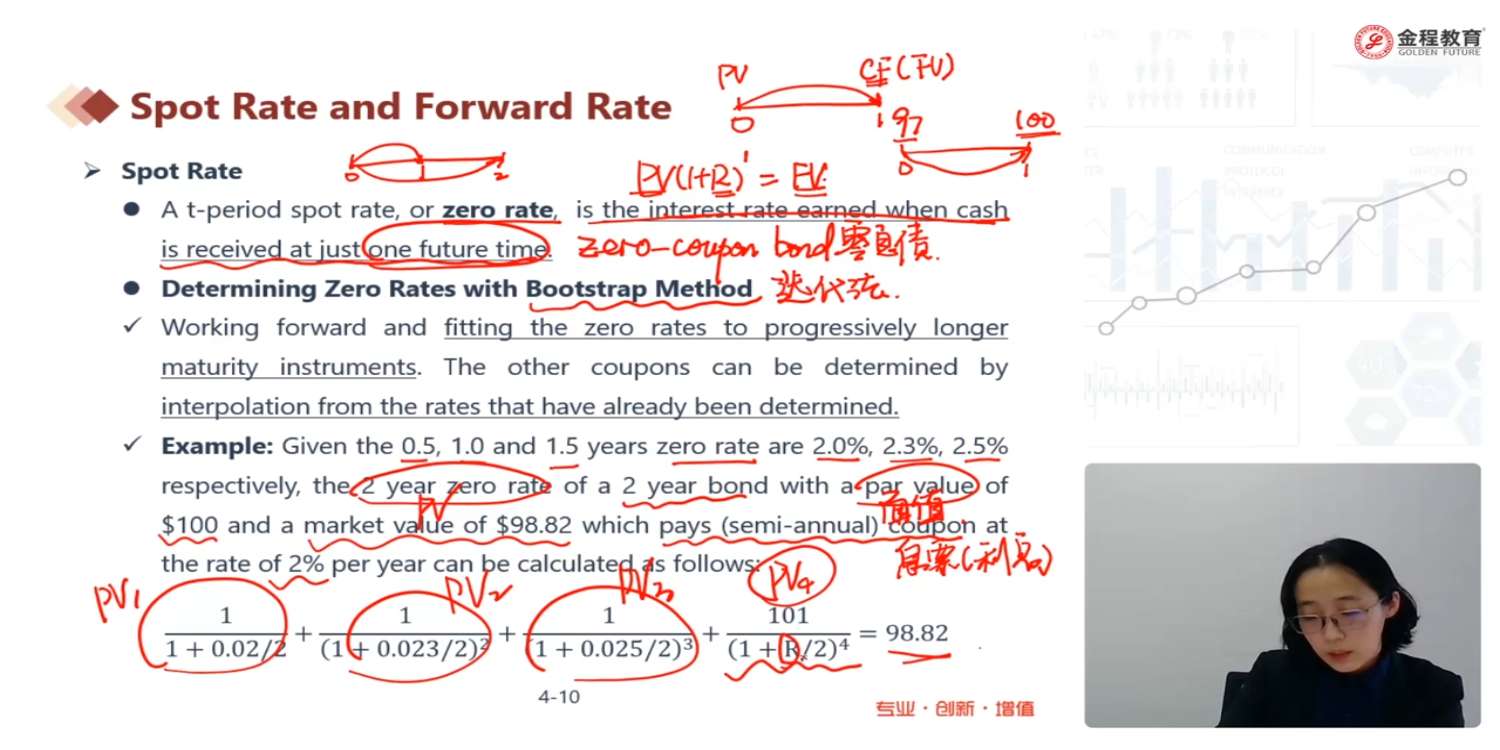 金程教育
GOLDEN FUTURE
PV
CF(FV)
0
1
97
100
0
1
Spot Rate and Forward Rate
0
1
2
Spot Rate
PV(1+R)¹ = FV.
A t-period spot rate, or zero rate, is the interest rate earned when cash
is received at just one future time.
zero-coupon bond 零息债.
Determining Zero Rates with Bootstrap Method
迭代法.
Working forward and fitting the zero rates to progressively longer
maturity instruments. The other coupons can be determined by
interpolation from the rates that have already been determined.
Example: Given the 0.5, 1.0 and 1.5 years zero rate are 2.0%, 2.3%, 2.5%
respectively, the 2 year zero rate of a 2 year bond with a par value of
PV
面值
$100 and a market value of $98.82 which pays (semi-annual) coupon at
息票(利息)
the rate of 2% per year can be calculated as follows:
PV₁
PV₂
PV₃
PV₄
1/(1 + 0.02/2) + 1/(1 + 0.023/2)² + 1/(1 + 0.025/2)³ + 101/(1 + R/2)⁴ = 98.82
4-10
专业·创新·增值